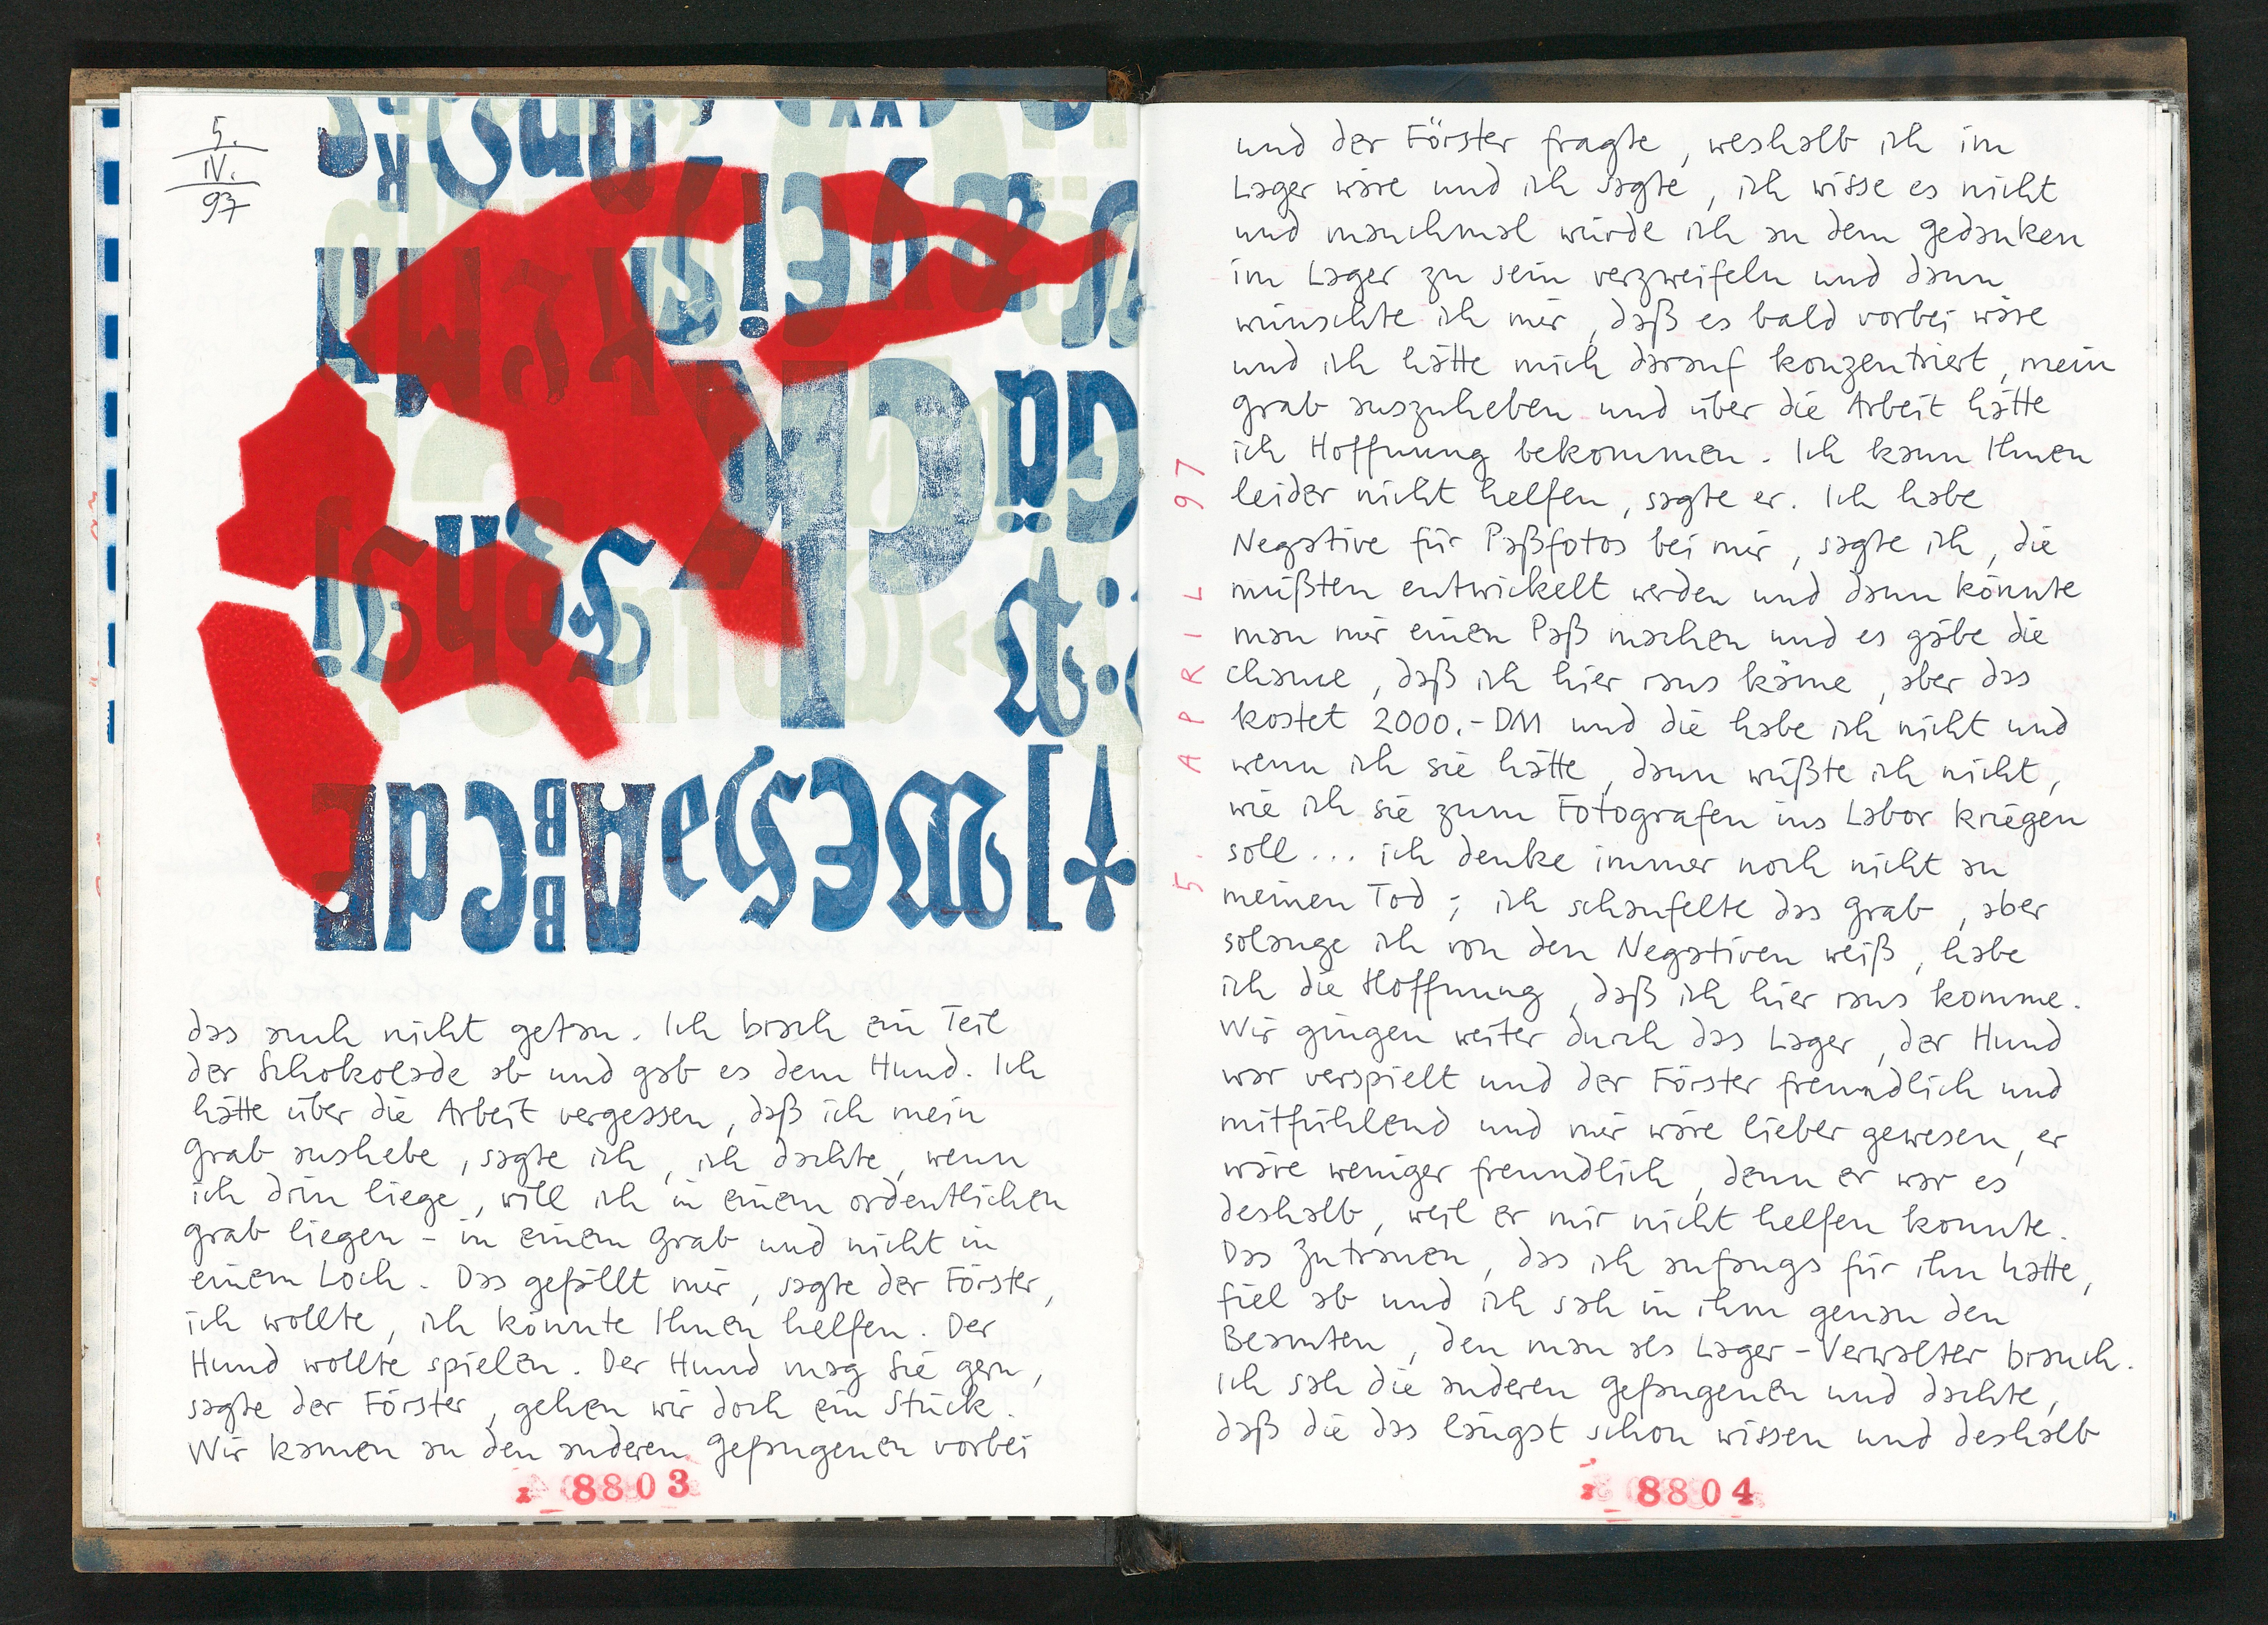 5.
IV.
97
das auch nicht getan. Ich brach ein Teil
der Schokolade ab und gab es dem Hund. Ich
hätte über die Arbeit vergessen, daß ich mein
Grab aushebe, sagte ich, ich dachte, wenn
ich drin liege, will ich in einem ordentlichen
Grab liegen - in einem Grab und nicht in
einem Loch. Das gefällt mir, sagte der Förster,
ich wollte, ich könnte Ihnen helfen. Der
Hund wollte spielen. Der Hund mag Sie gern,
sagte der Förster, gehen wir doch ein Stück.
Wir kamen an den anderen Gefangenen vorbei
8803
5. APRIL 97
und der Förster fragte, weshalb ich im
Lager wäre und ich sagte, ich wisse es nicht
und manchmal würde ich an dem Gedanken
im Lager zu sein verzweifeln und dann
wünschte ich mir, daß es bald vorbei wäre
und ich hätte mich darauf konzentriert, mein
Grab auszuheben und über die Arbeit hätte
ich Hoffnung bekommen. Ich kann Ihnen
leider nicht helfen, sagte er. Ich habe
Negative für Paßfotos bei mir, sagte ich, die
müßten entwickelt werden und dann könnte
man mir einen Paß machen und es gäbe die
Chance, daß ich hier raus käme, aber das
kostet 2000.- DM und die habe ich nicht und
wenn ich sie hätte, dann wüßte ich nicht,
wie ich sie zum Fotografen ins Labor kriegen
soll... ich denke immer noch nicht an
meinen Tod; ich schaufelte das Grab, aber
solange ich von den Negativen weiß, habe
ich die Hoffnung, daß ich hier raus komme.
Wir gingen weiter durch das Lager, der Hund
war verspielt und der Förster freundlich und
mitfühlend und mir wäre lieber gewesen, er
wäre weniger freundlich, denn er war es
deshalb, weil er mir nicht helfen konnte.
Das Zutrauen, das ich anfangs für ihn hatte,
fiel ab und ich sah in ihm genau den
Beamten, den man als Lager-Verwalter brauch.
Ich sah die anderen Gefangenen und dachte,
daß die das längst schon wissen und deshalb
8804